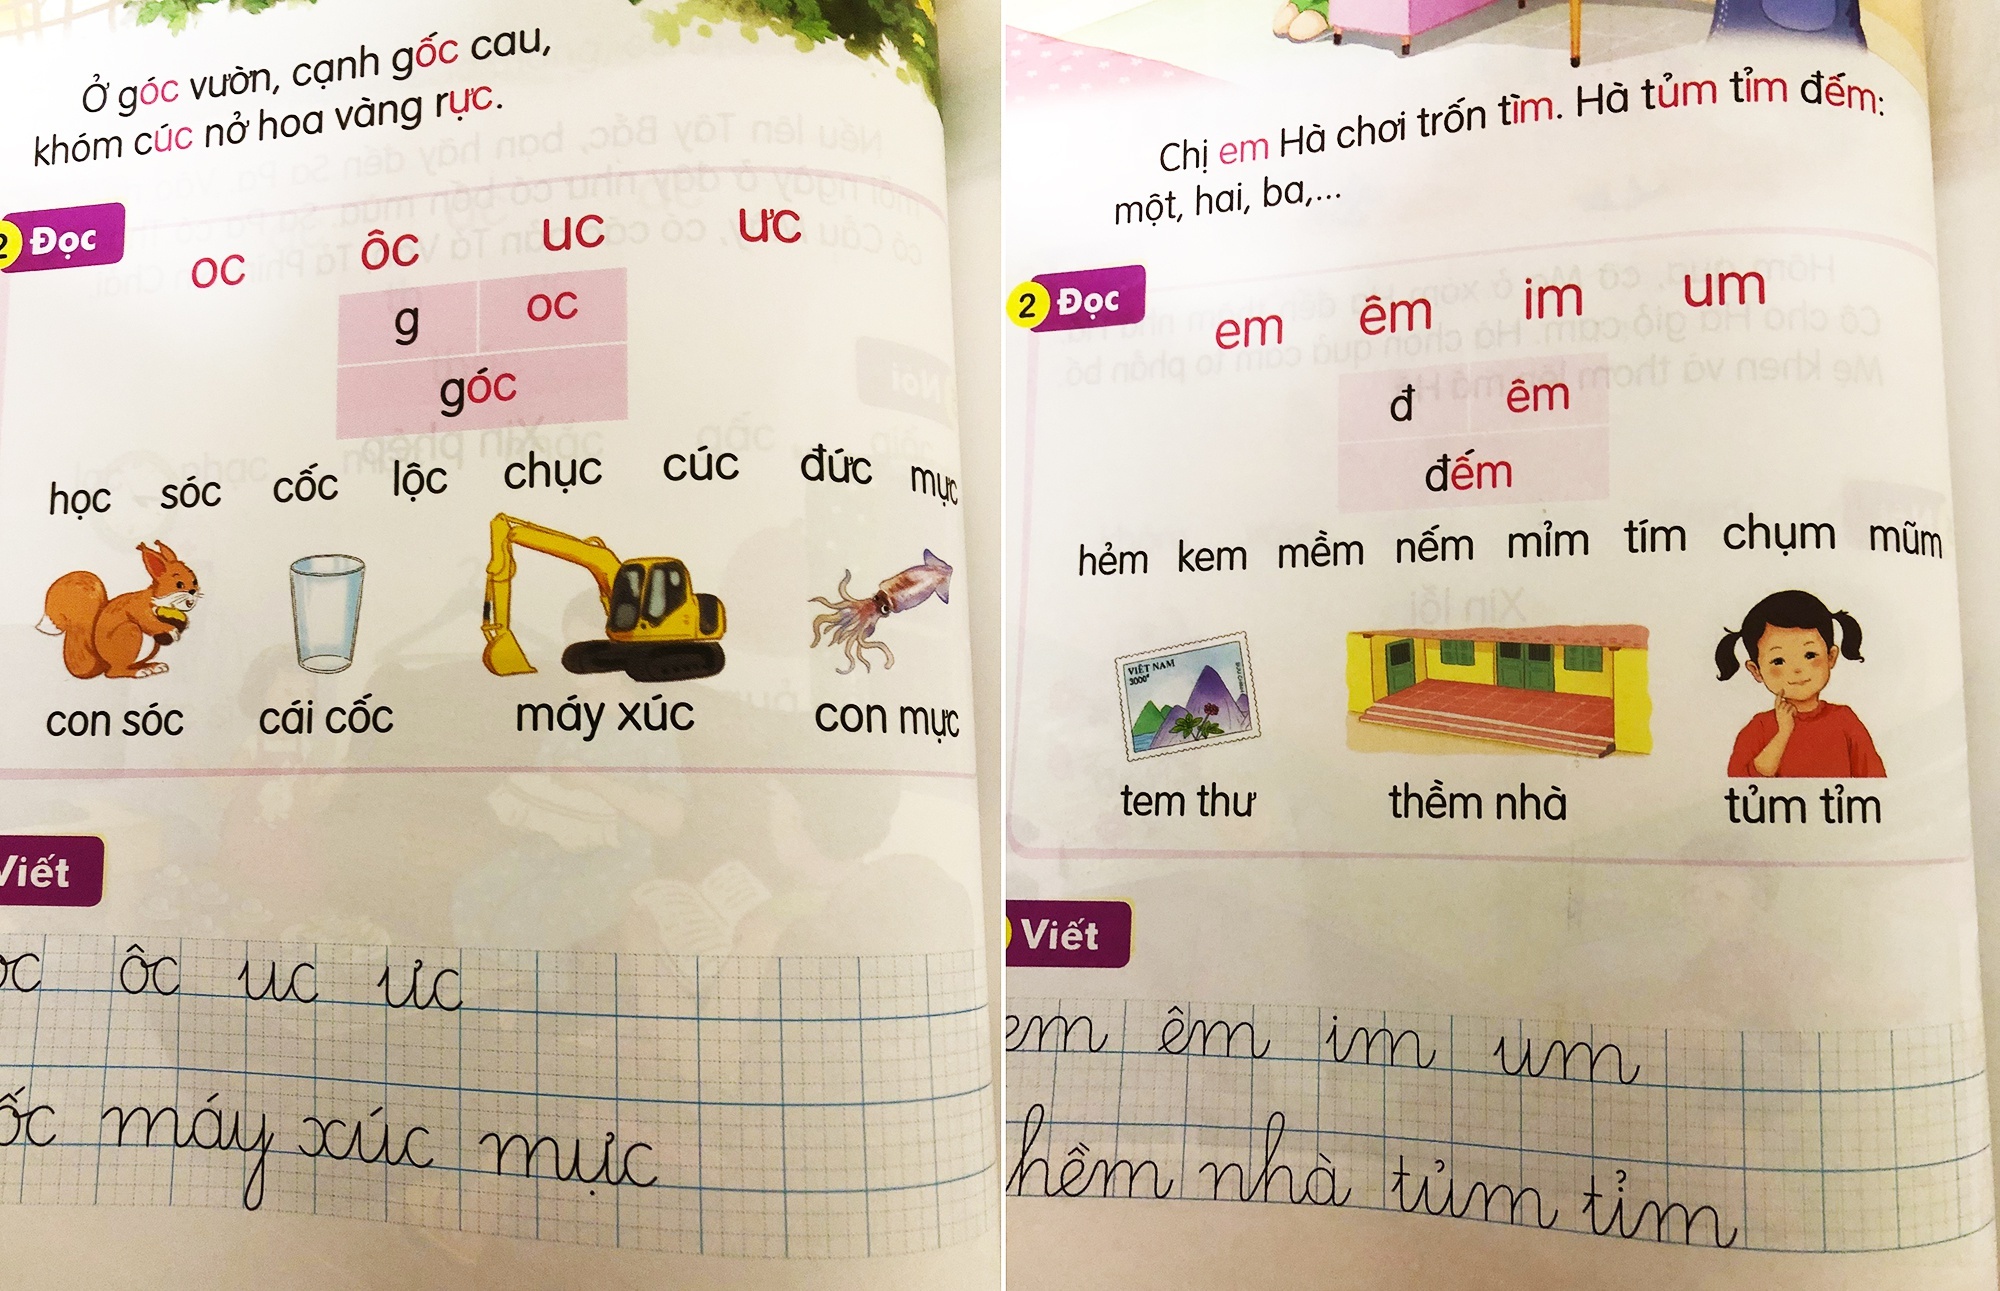 Ở góc vườn, cạnh gốc cau,
khóm cúc nở hoa vàng rực.
2 Đọc
oc ôc uc ưc
g oc
góc
học sóc cốc lộc chục cúc đức mực
con sóc cái cốc máy xúc con mực
Viết
oc ôc uc ưc
ốc máy xúc mực
Chị em Hà chơi trốn tìm. Hà tủm tỉm đếm:
một, hai, ba,...
2 Đọc
em êm im um
đ êm
đếm
hẻm kem mềm nếm mỉm tím chụm mũm
VIỆT NAM
3000đ
tem thư thềm nhà tủm tỉm
Viết
em êm im um
hềm nhà tủm tỉm